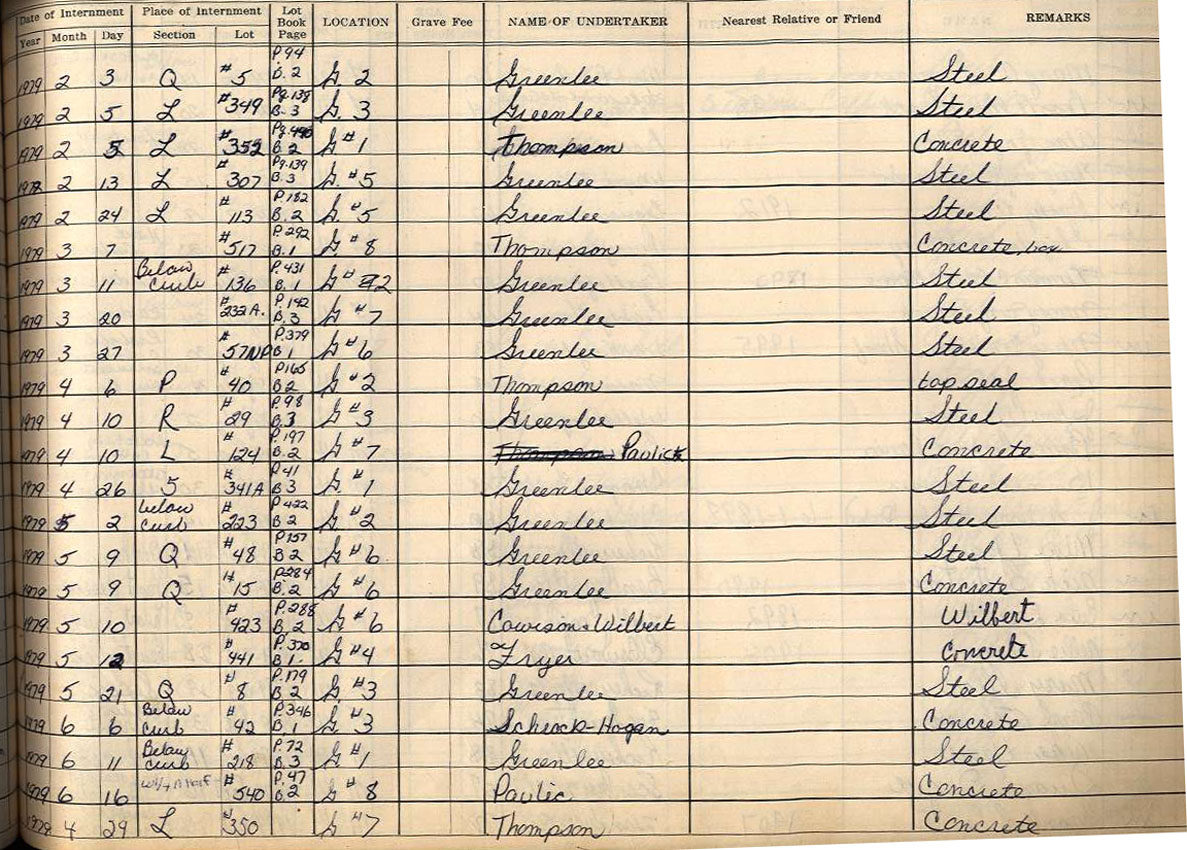 Date of Internment Place of Internment Lot Book Page LOCATION Grave Fee NAME OF UNDERTAKER Nearest Relative or Friend REMARKS
Year Month Day Section Lot
1979 2 3 Q #5 P 94 B. 2 G 2 Greenlee Steel
1979 2 5 L #349 Pg. 138 B. 3 G. 3 Greenlee Steel
1979 2 5 L #352 B 2 G #1 Thompson Concrete
2 13 L #307 Pg. 139 B. 3 G. #5 Greenlee Steel
1979 2 24 L #113 P. 182 B. 2 G. #5 Greenlee Steel
1979 3 7 #517 P. 292 B. 1 G. #8 Thompson Concrete box
1979 3 11 Below curb #136 P. 431 B. 1 G # 2 Greenlee Steel
1979 3 20 #232A. P. 142 B. 3 G #7 Greenlee Steel
1979 3 27 #57NP P. 379 B 1 G #6 Greenlee Steel
1979 4 6 P #40 P165 B. 2 G #2 Thompson top seal
1979 4 10 R #29 P. 98 B. 3 G #3 Greenlee Steel
1979 4 10 L #124 P. 197 B. 2 G #7 Thompson Paulick Concrete
1979 4 26 5 #341A P 41 B 3 G. #1 Greenlee Steel
1979 5 2 below curb #223 P 422 B 2 G #2 Greenlee Steel
1979 5 9 Q #48 P 157 B 2 G #6 Greenlee Steel
1979 5 9 Q #15 P284 B. 2 G #6 Greenlee Concrete
1979 5 10 #423 P. 288 B. 2 G #6 Wilbert Wilbert
1979 5 12 #441 P. 370 B. 1. G #4 Fryer Concrete
1979 5 21 Q #8 P. 179 B 2 G #3 Greenlee Steel
1979 6 6 Below curb #42 P. 346 B. 1 G #3 Schrock-Hogan Concrete
1979 6 11 Below curb #218 P. 72 B. 3 G #1 Greenlee Steel
1979 6 16 #540 P. 47 B. 2 G #8 Paulic Concrete
1979 4 29 L #350 G #7 Thompson Concrete